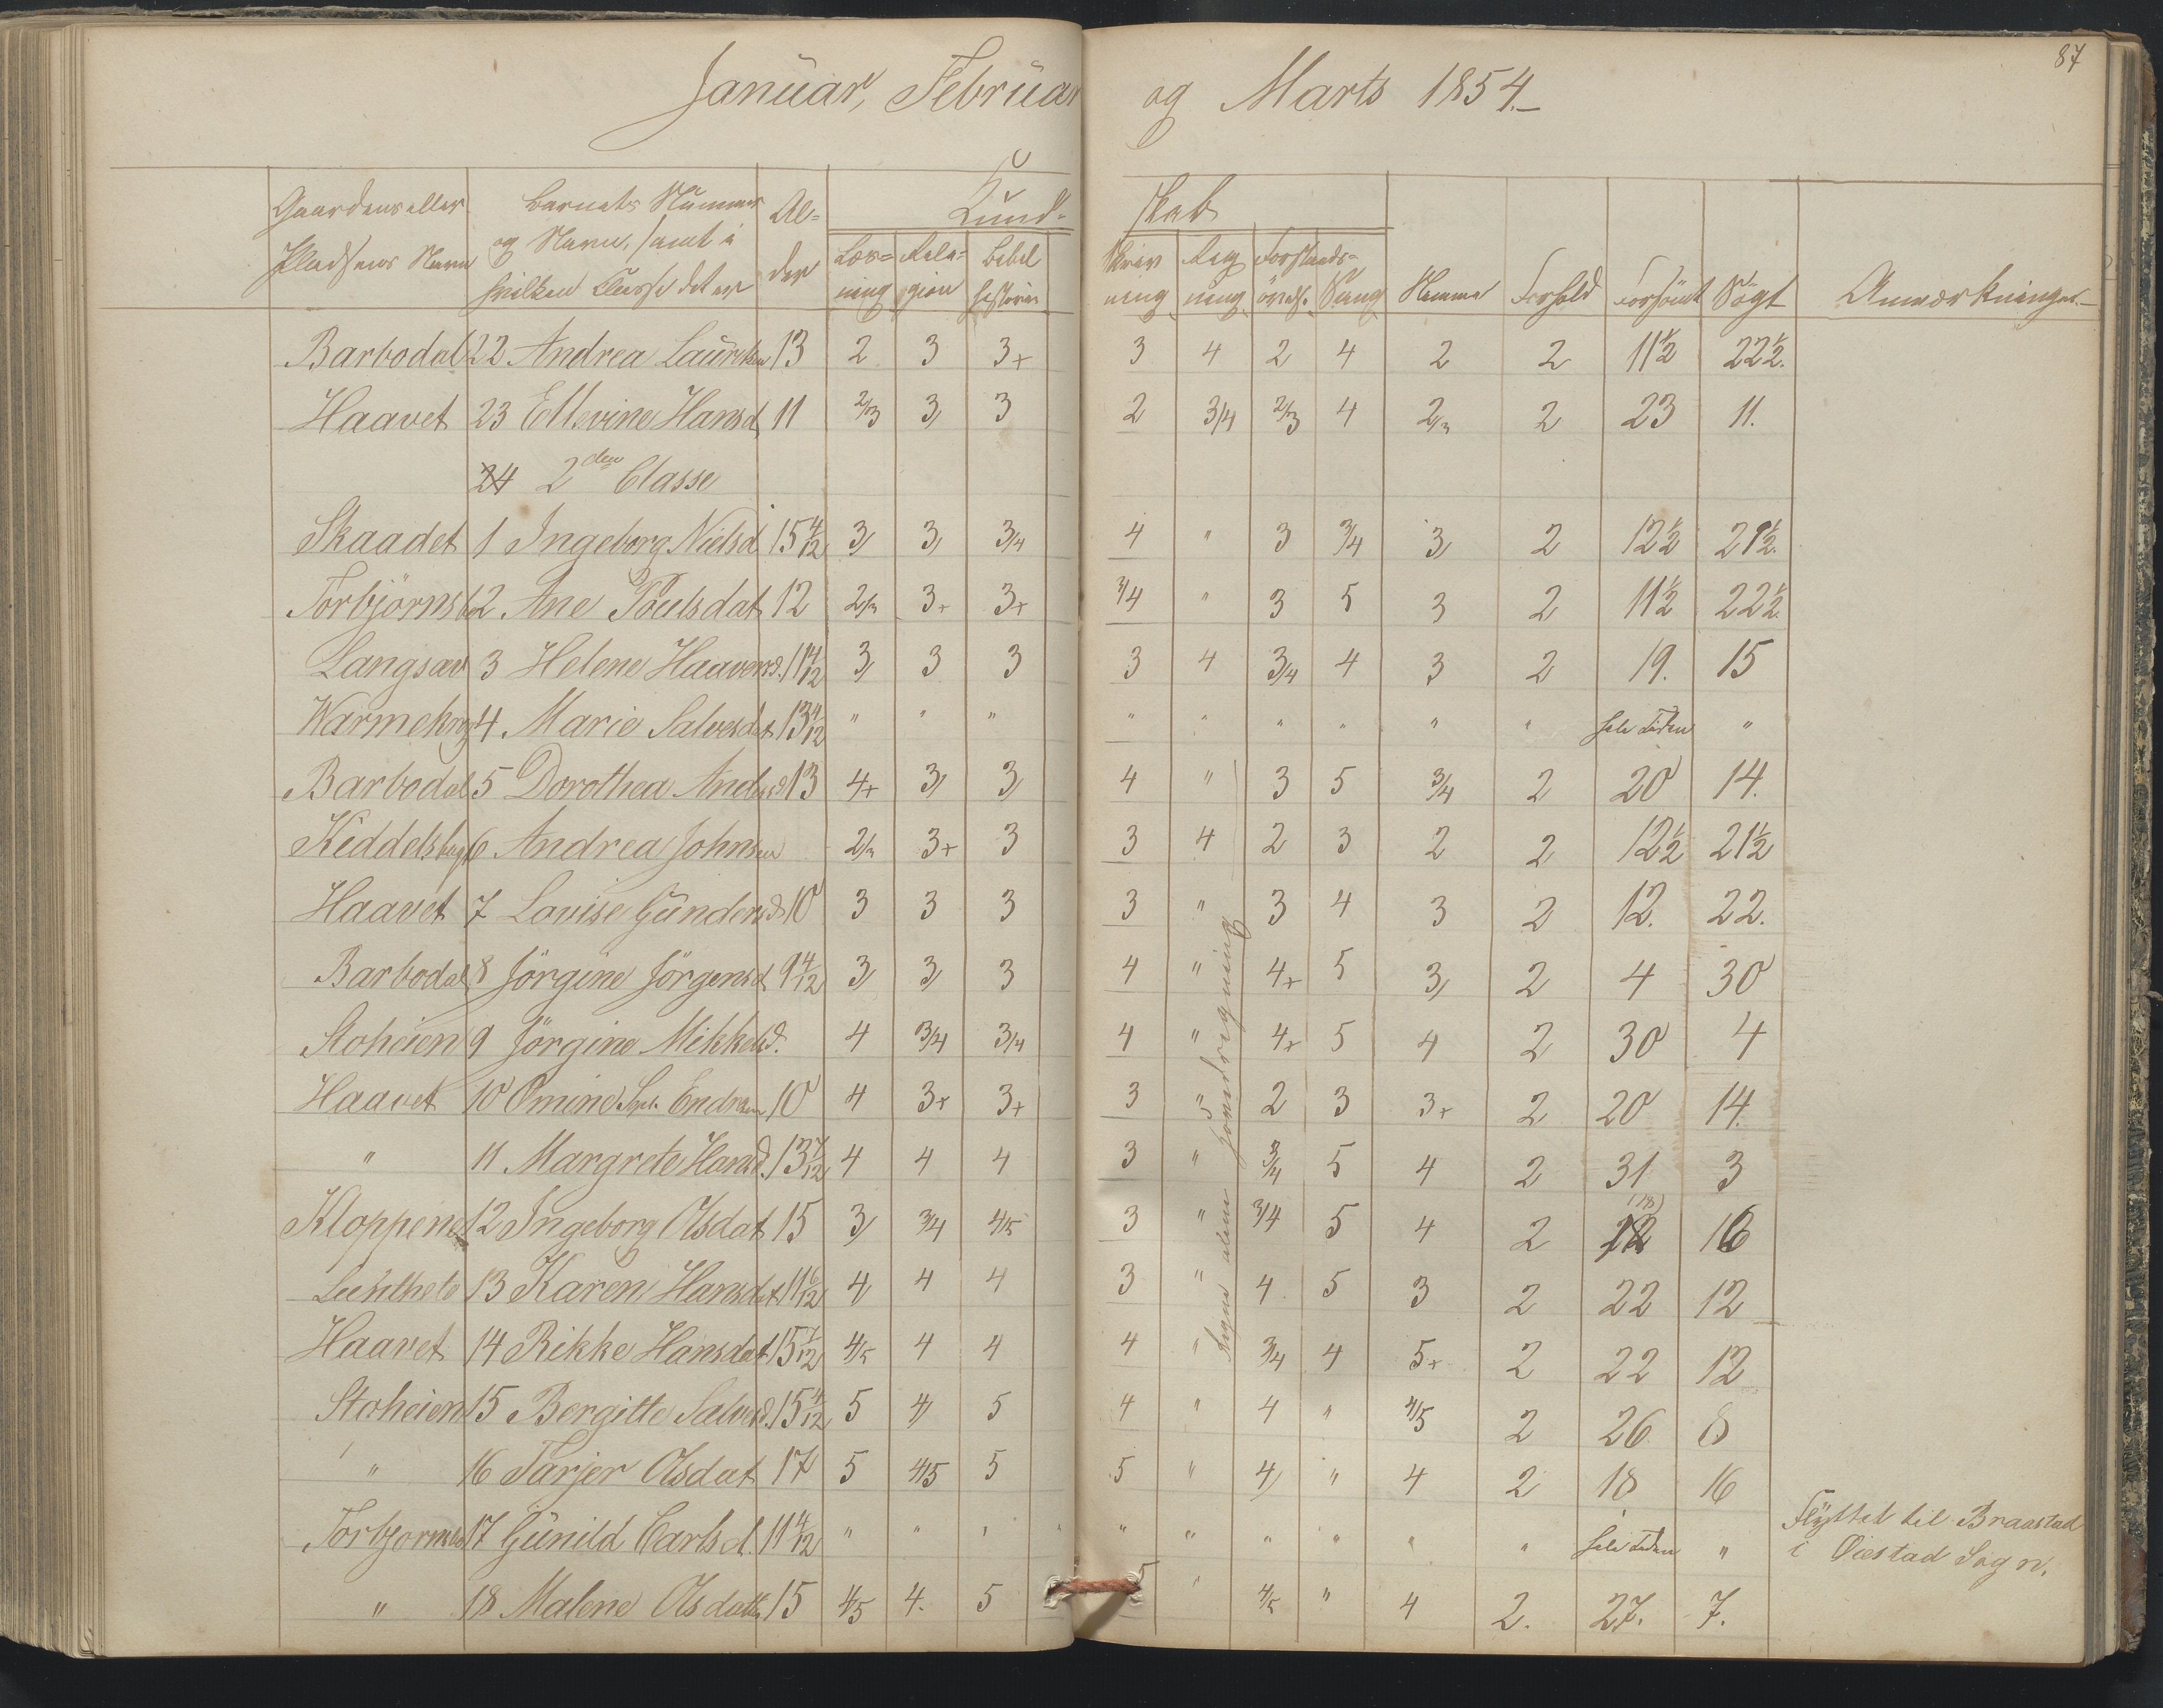 87
Januar, Februar og Marts 1854.
Gaardens eller Pladsens Navn | Barnets Nummer og Navn, samt i hvilken Classe det er | Al-der | Kund-skab
Læs-ning | Reli-gion | Bibel historie | Skriv ning | Reg ning | Forstands-övels. | Sang | Nemme | Forhold | Forsömt | Sögt | Anmærkninger
Barbodal 22 Andrea Lauritsen 13 2 3 3+ 3 4 2 4 2 2 11½ 22½.
Haavet 23 Ellevine Hansd 11 2/3 3/ 3 2 3/4 2/3 4 2/3 2 23 11.
24 2den Classe
Skaadet 1 Ingeborg Nielsd 15 4/12 3/ 3/ 3/4 4 " 3 3/4 3/ 2 12½ 21½.
Torbjörnsbo 2 Ane Poulsdat 12 2/3 3+ 3+ 3/4 " 3 5 3 2 11½ 22½.
Langsæv 3 Helene Haavorsd. 11 4/12 3/ 3 3 3 4 3/4 4 3 2 19. 15
4 Marie Salvesdat 13 4/12 " " " " " " " " " hele Tiden "
Barbodal 5 Dorothea Andersd 13 4+ 3/ 3/ 4 " 3 5 3/4 2 20 14.
6 Andrea Johnsen 2/3 3+ 3 3 4 2 3 2 2 12½ 21½
Haavet 7 Lovise Gundersd 10 3 3 3 3 " 3 4 3 2 12. 22.
Barbodal 8 Jörgine Jörgensd 9 4/12 3/ 3/ 3 4 " 4+ 5 3/ 2 4 30
Stoheien 9 Jörgine Mikkelsd. 4 3/4 3/4 4 " 4+ 5 4 2 30 4
Haavet 10 Omine Endresen 10 4 3+ 3+ 3 " 2 3 3+ 2 20 14.
" 11 Margrete Hansd. 13 7/12 4 4 4 3 " 3/4 5 4 2 31 3
Kloppene 12 Ingeborg Olsdat 15 3/ 3/4 4/5 3 " 3/4 5 4 2 (18) 16
13 Karen Hansdat 11 6/12 4/ 4 4 3 " 4 5 3 2 22 12
Haavet 14 Rikke Hansdat 15 1/12 4/5 4 4 4 " 3/4 4 5+ 2 22 12
Stoheien 15 Bergitte Salvesd. 15 4/12 5 4/ 5 4 " 4 " 4/5 2 26 8
" 16 Tarjer Olsdat 17 5 4/5 5 5 " 4/ " 4 2 18 16
Torbjornsbo 17 Gunild Carlsd. 11 4/12 " " " " " " " " " hele Tiden " Flyttet til Braastad
i Öiestad Sogn.
" 18 Malene Olsdatter 15 4/5 4. 5 5 " 4/5 " 4 2. 27. 7.
Regne alene Jomdregning